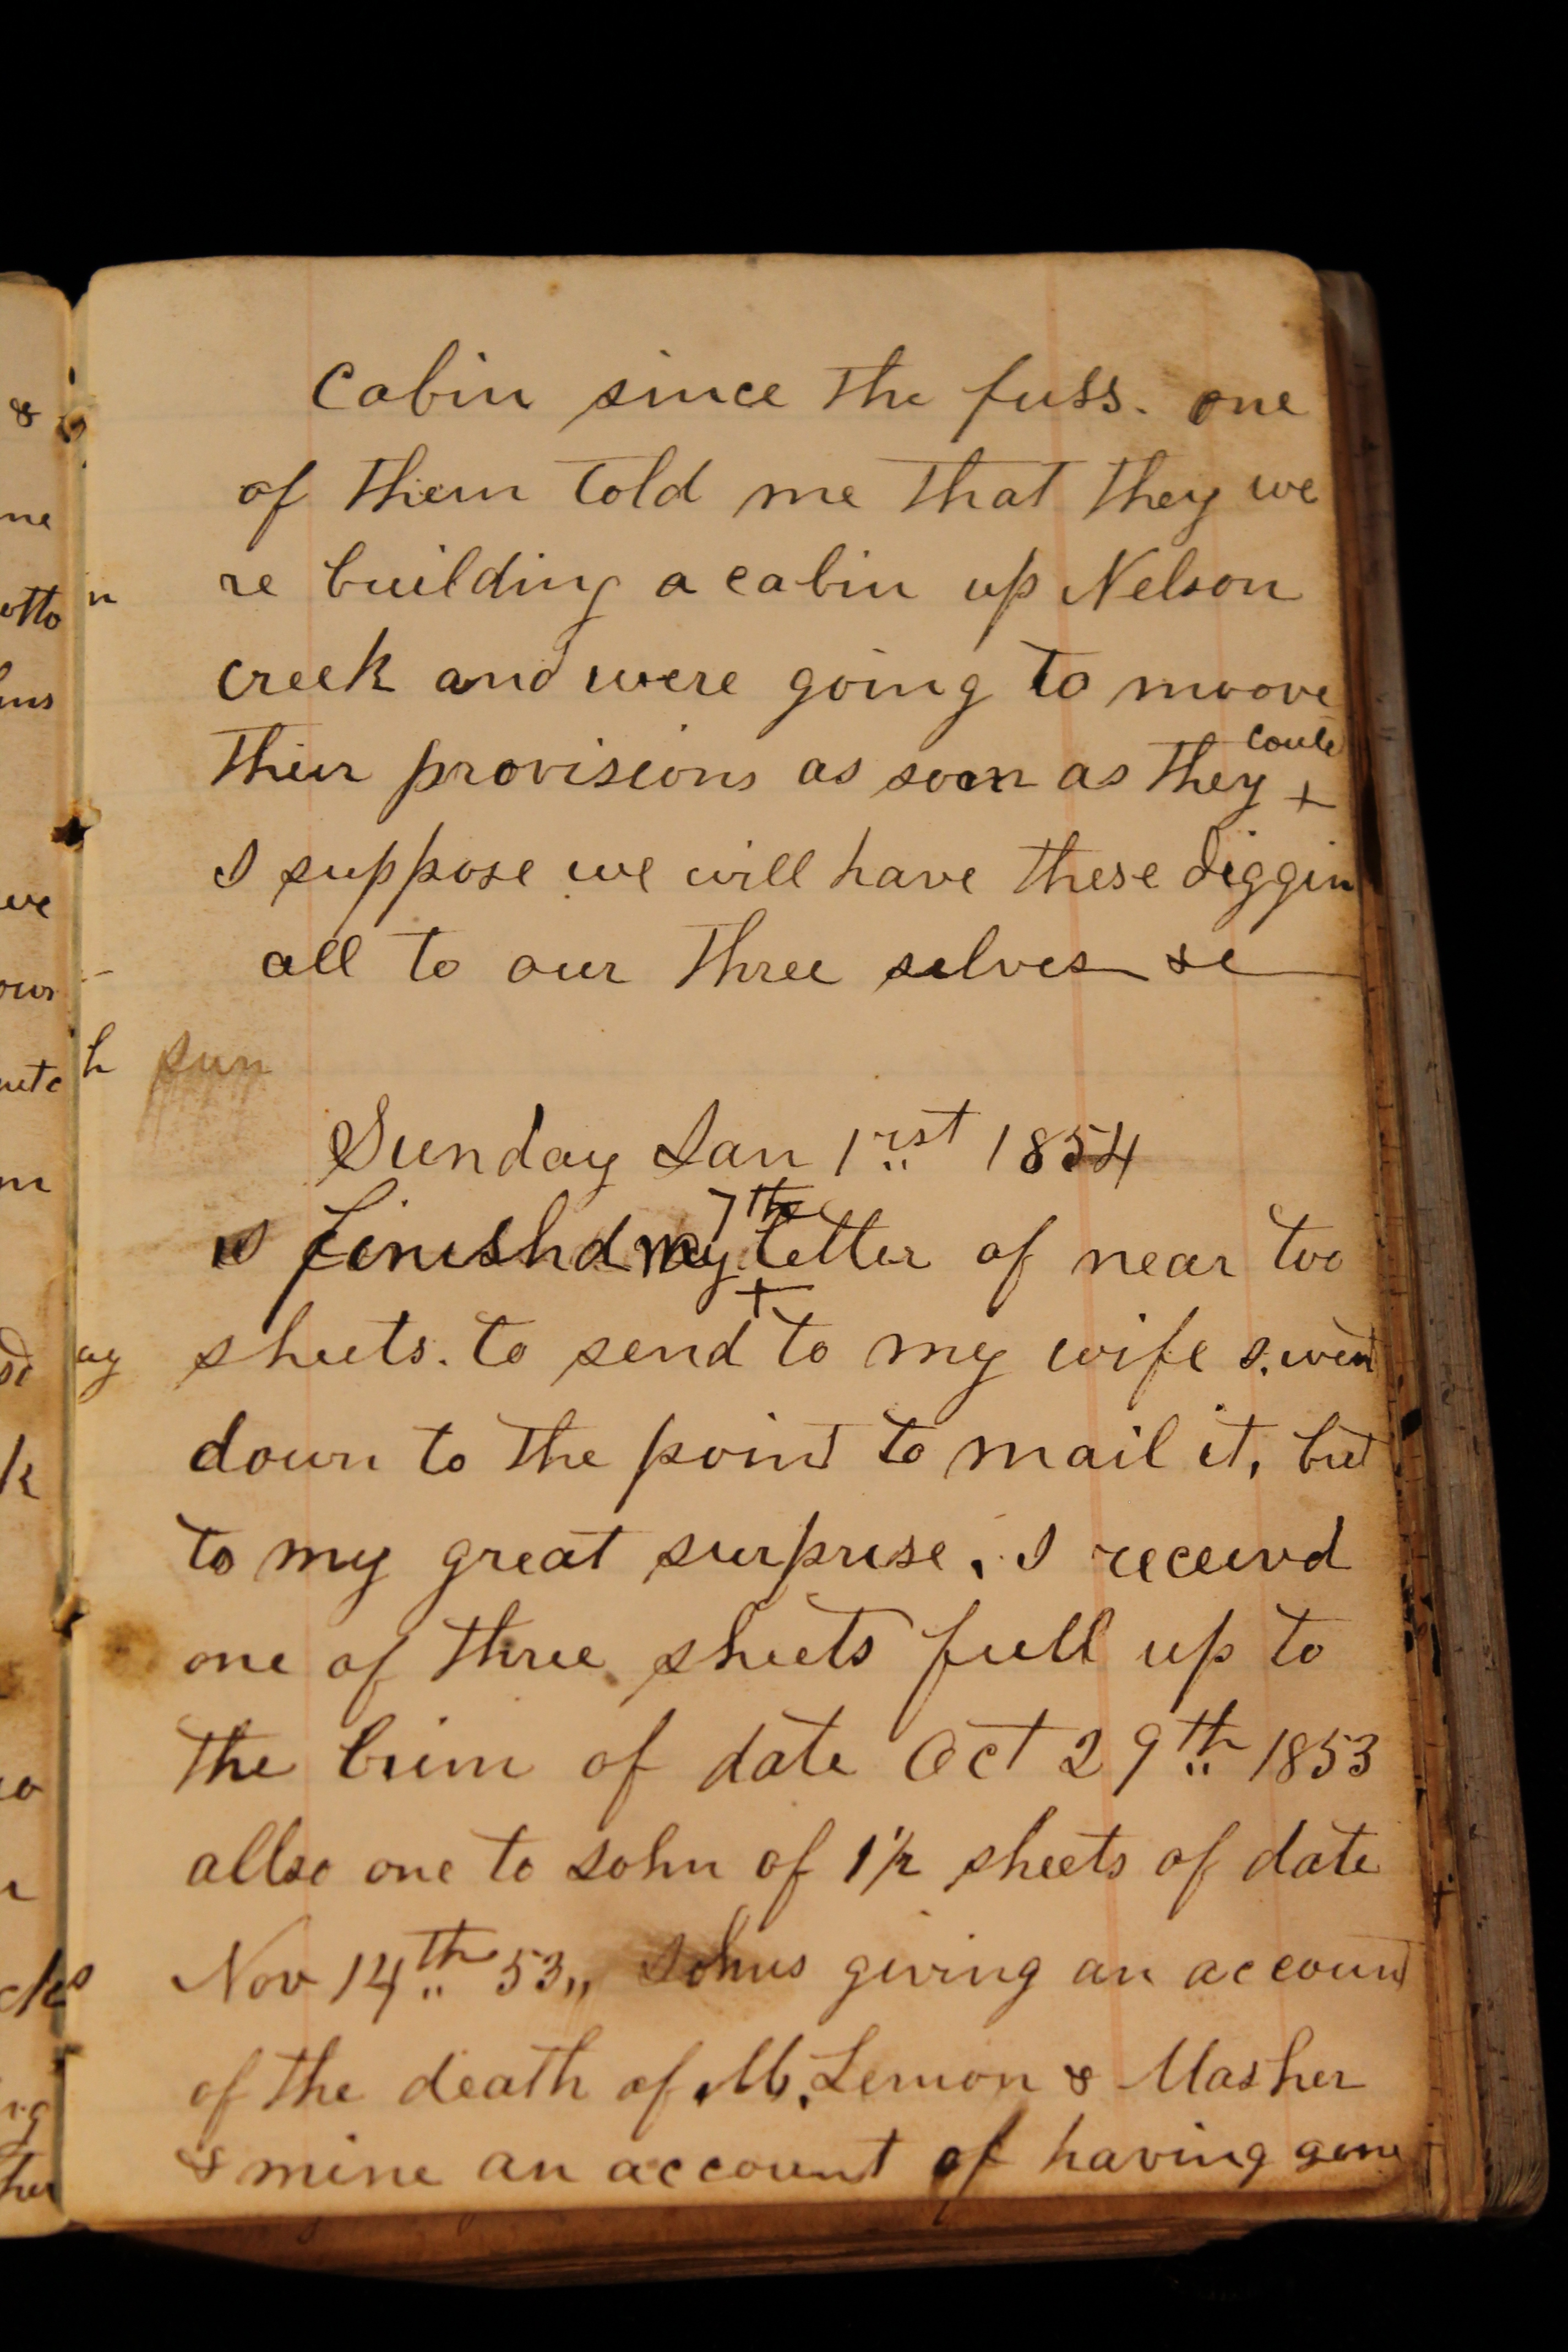 cabin since the fuss. one
of them told me that they we
re building a cabin up Nelson
creek and were going to moove
their provisions as soon as they + could
I suppose we will have these diggin
all to our three selves &c
sun
Sunday Jan 1rst 1854
I finishd my + 7th letter of near too
sheets. to send to my wife &. went
down to the point to mail it, but
to my great surprise, I receivd
one of three sheets full up to
the brim of date Oct 29th 1853
allso one to John of 1½ sheets of date
Nov 14th 53,, Johns giving an account
of the death of M. Lemon & Masher
& mine an account of having gone